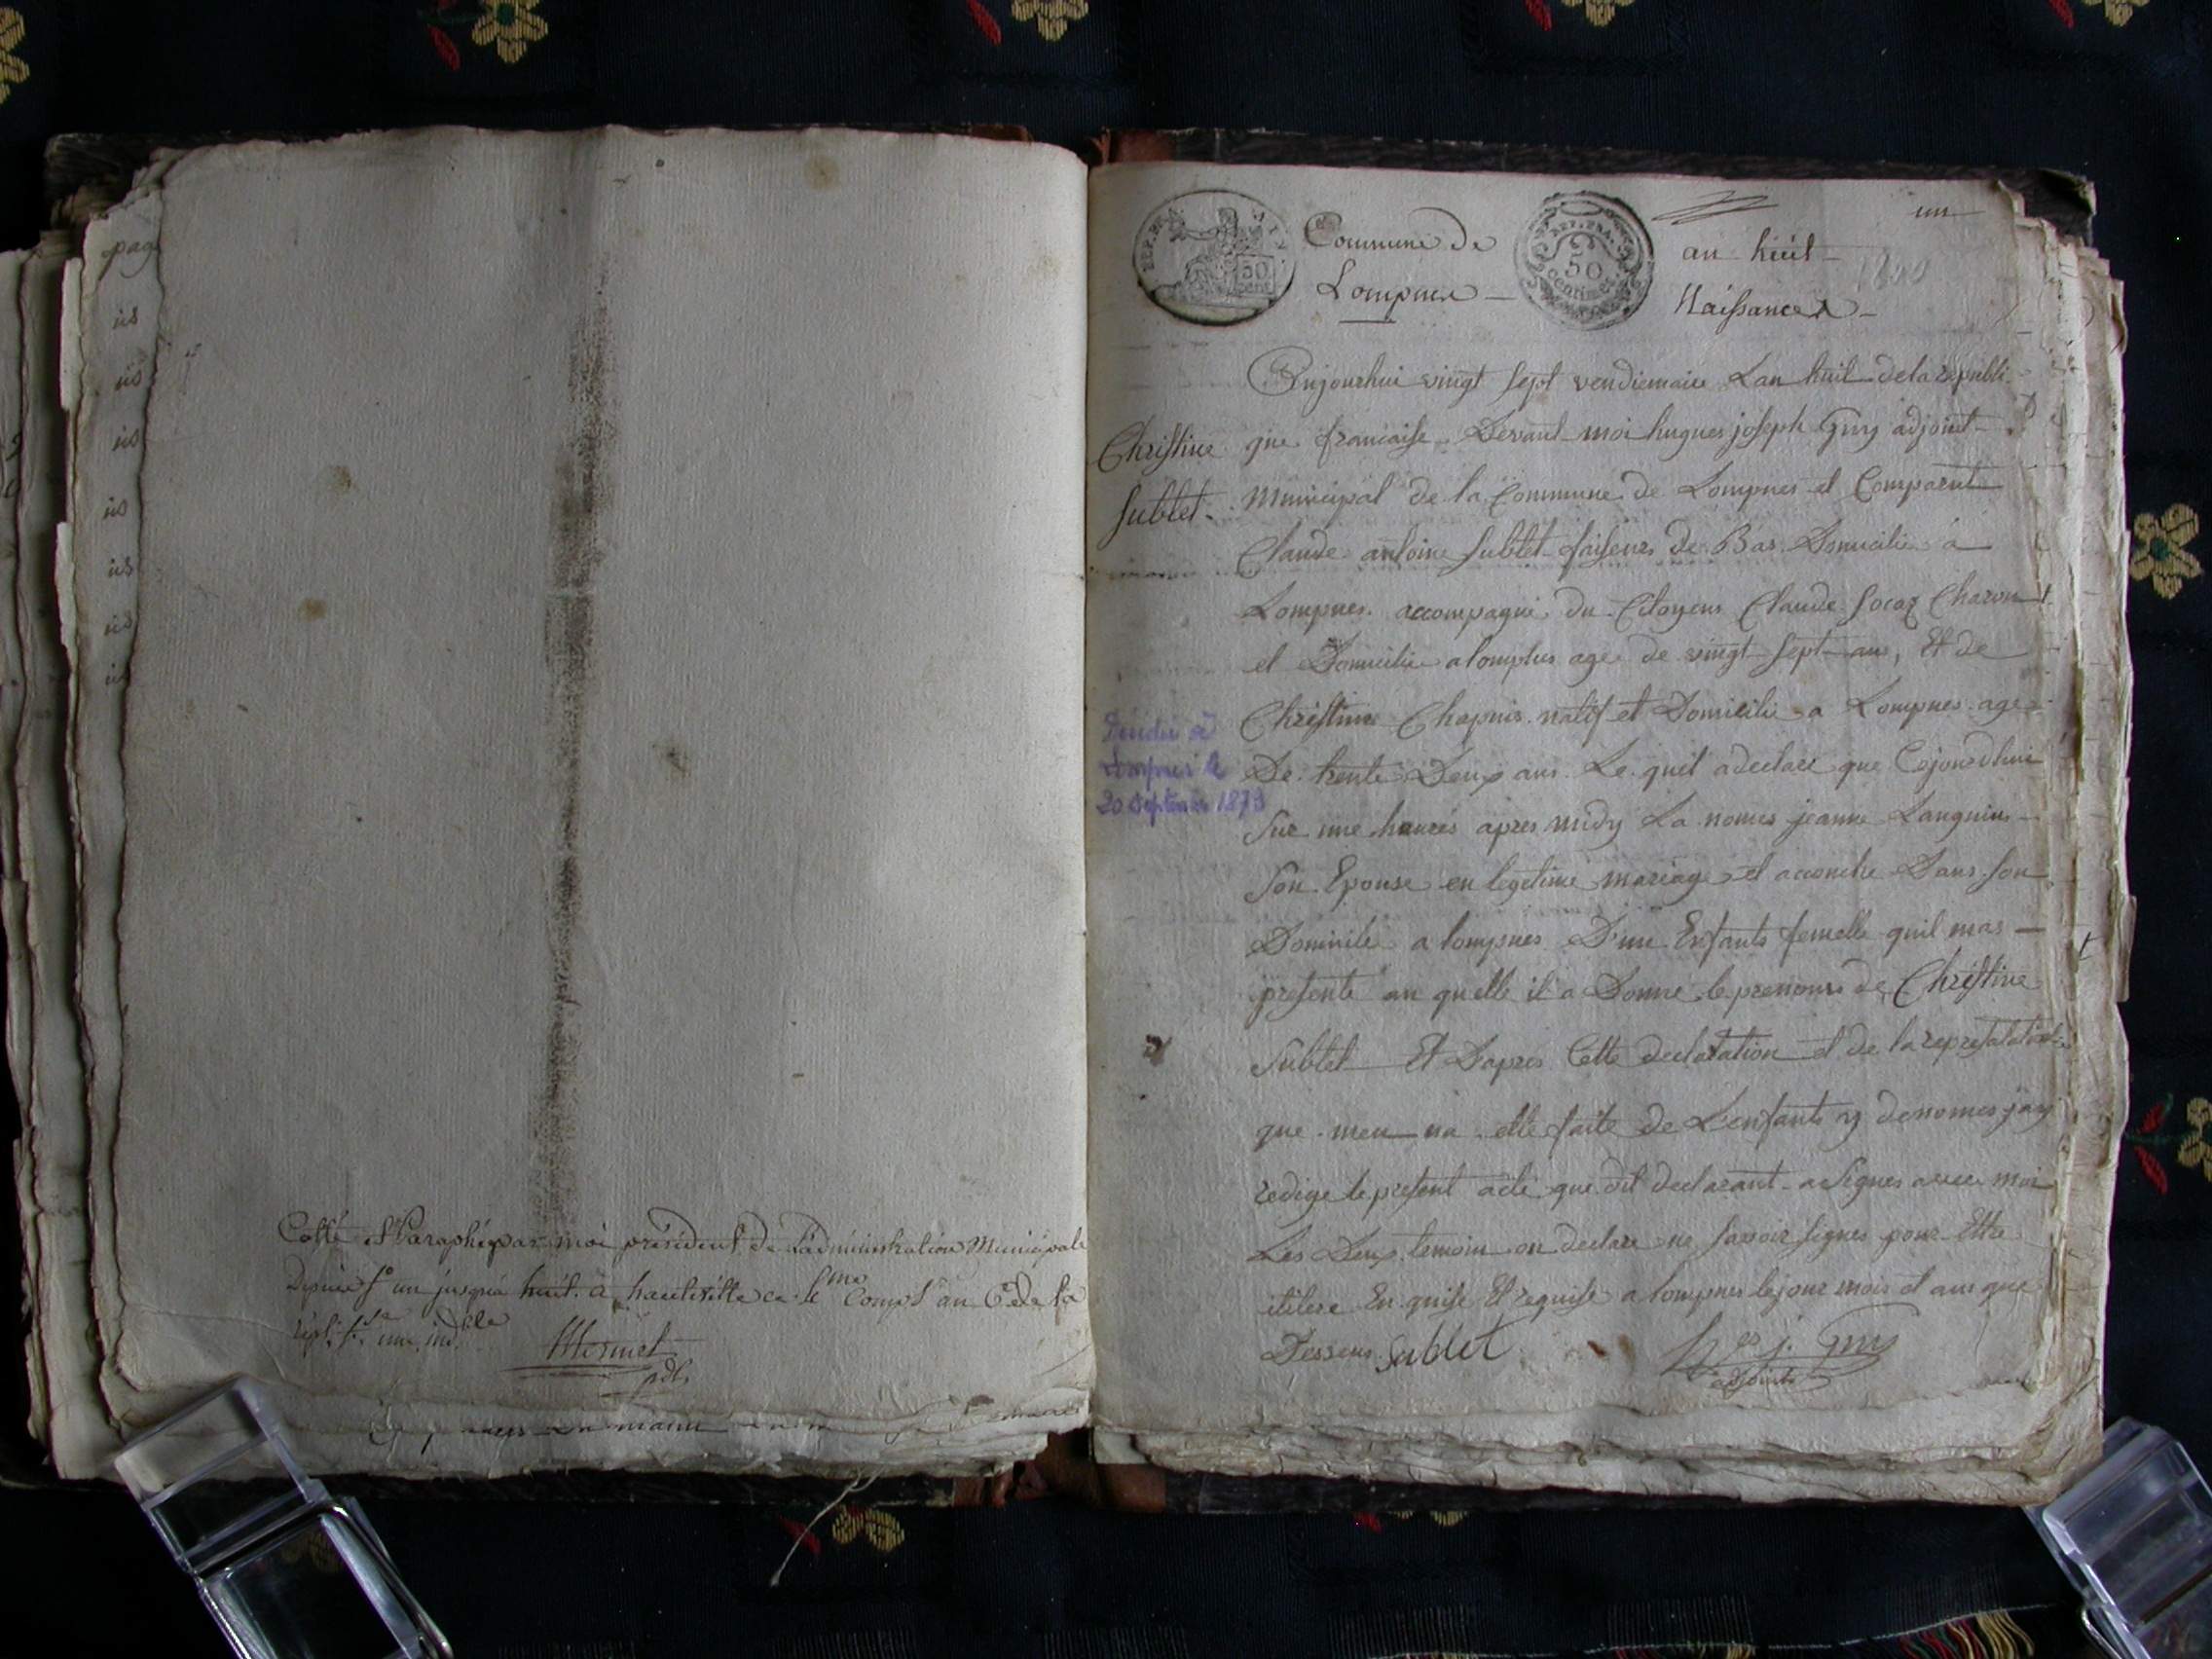 pag
iis
iis
iis
iis
iis
iis
Cotté et Paraphé par moi président de L'administration Municipale
Depuis f° un jusqua huit. a hauteville ce 5me Comp.l an 6e de la
répl. f.se une, ind.ble
pdt.
REP. FRA.
50
cent
Commune de
Lompnes
REP. FRA.
50
centimes
un
an huit
1800
Naissances
Christine
Sublet
Décédée à
Lompnes le
20 Septembre 1873
Aujourhui vingt sept vendiemaire Lan huit de la republi
que francaise Devant moi hugues joseph Guy adjoint
Municipal de la Commune de Lompnes et Comparut
Claude antoine Sublet faiseur de Bas Domicilié à
Lompnes accompagné du Citoyens Claude Charon
et Domicilie a lompnes age de vingt sept ans, Et de
Christine Chapuis natif et Domicilie a Lompnes age
De trente Deux ans Le quel a declare que Cejourdhui
Sur une heures apres midy La nomes jeanne
Son Epouse en legetime mariage et accouche Dans Son
Domicile a lompnes D'un Enfants femelle quil mas
presente au quelle il a Donné le prenoms de Christine
Sublet Et Dapres Cette declaration et de la represatation
que men na ette faite de Lenfants y denomes jay
redige le present acte que dit declarant a Signes avec moi
Les Deux temoin on declare ne Savoir Signes pour Ettre
En quise Et requise a lompnes le jour mois et ans que
Dessus Sublet
h.es j. Guy
adjoint